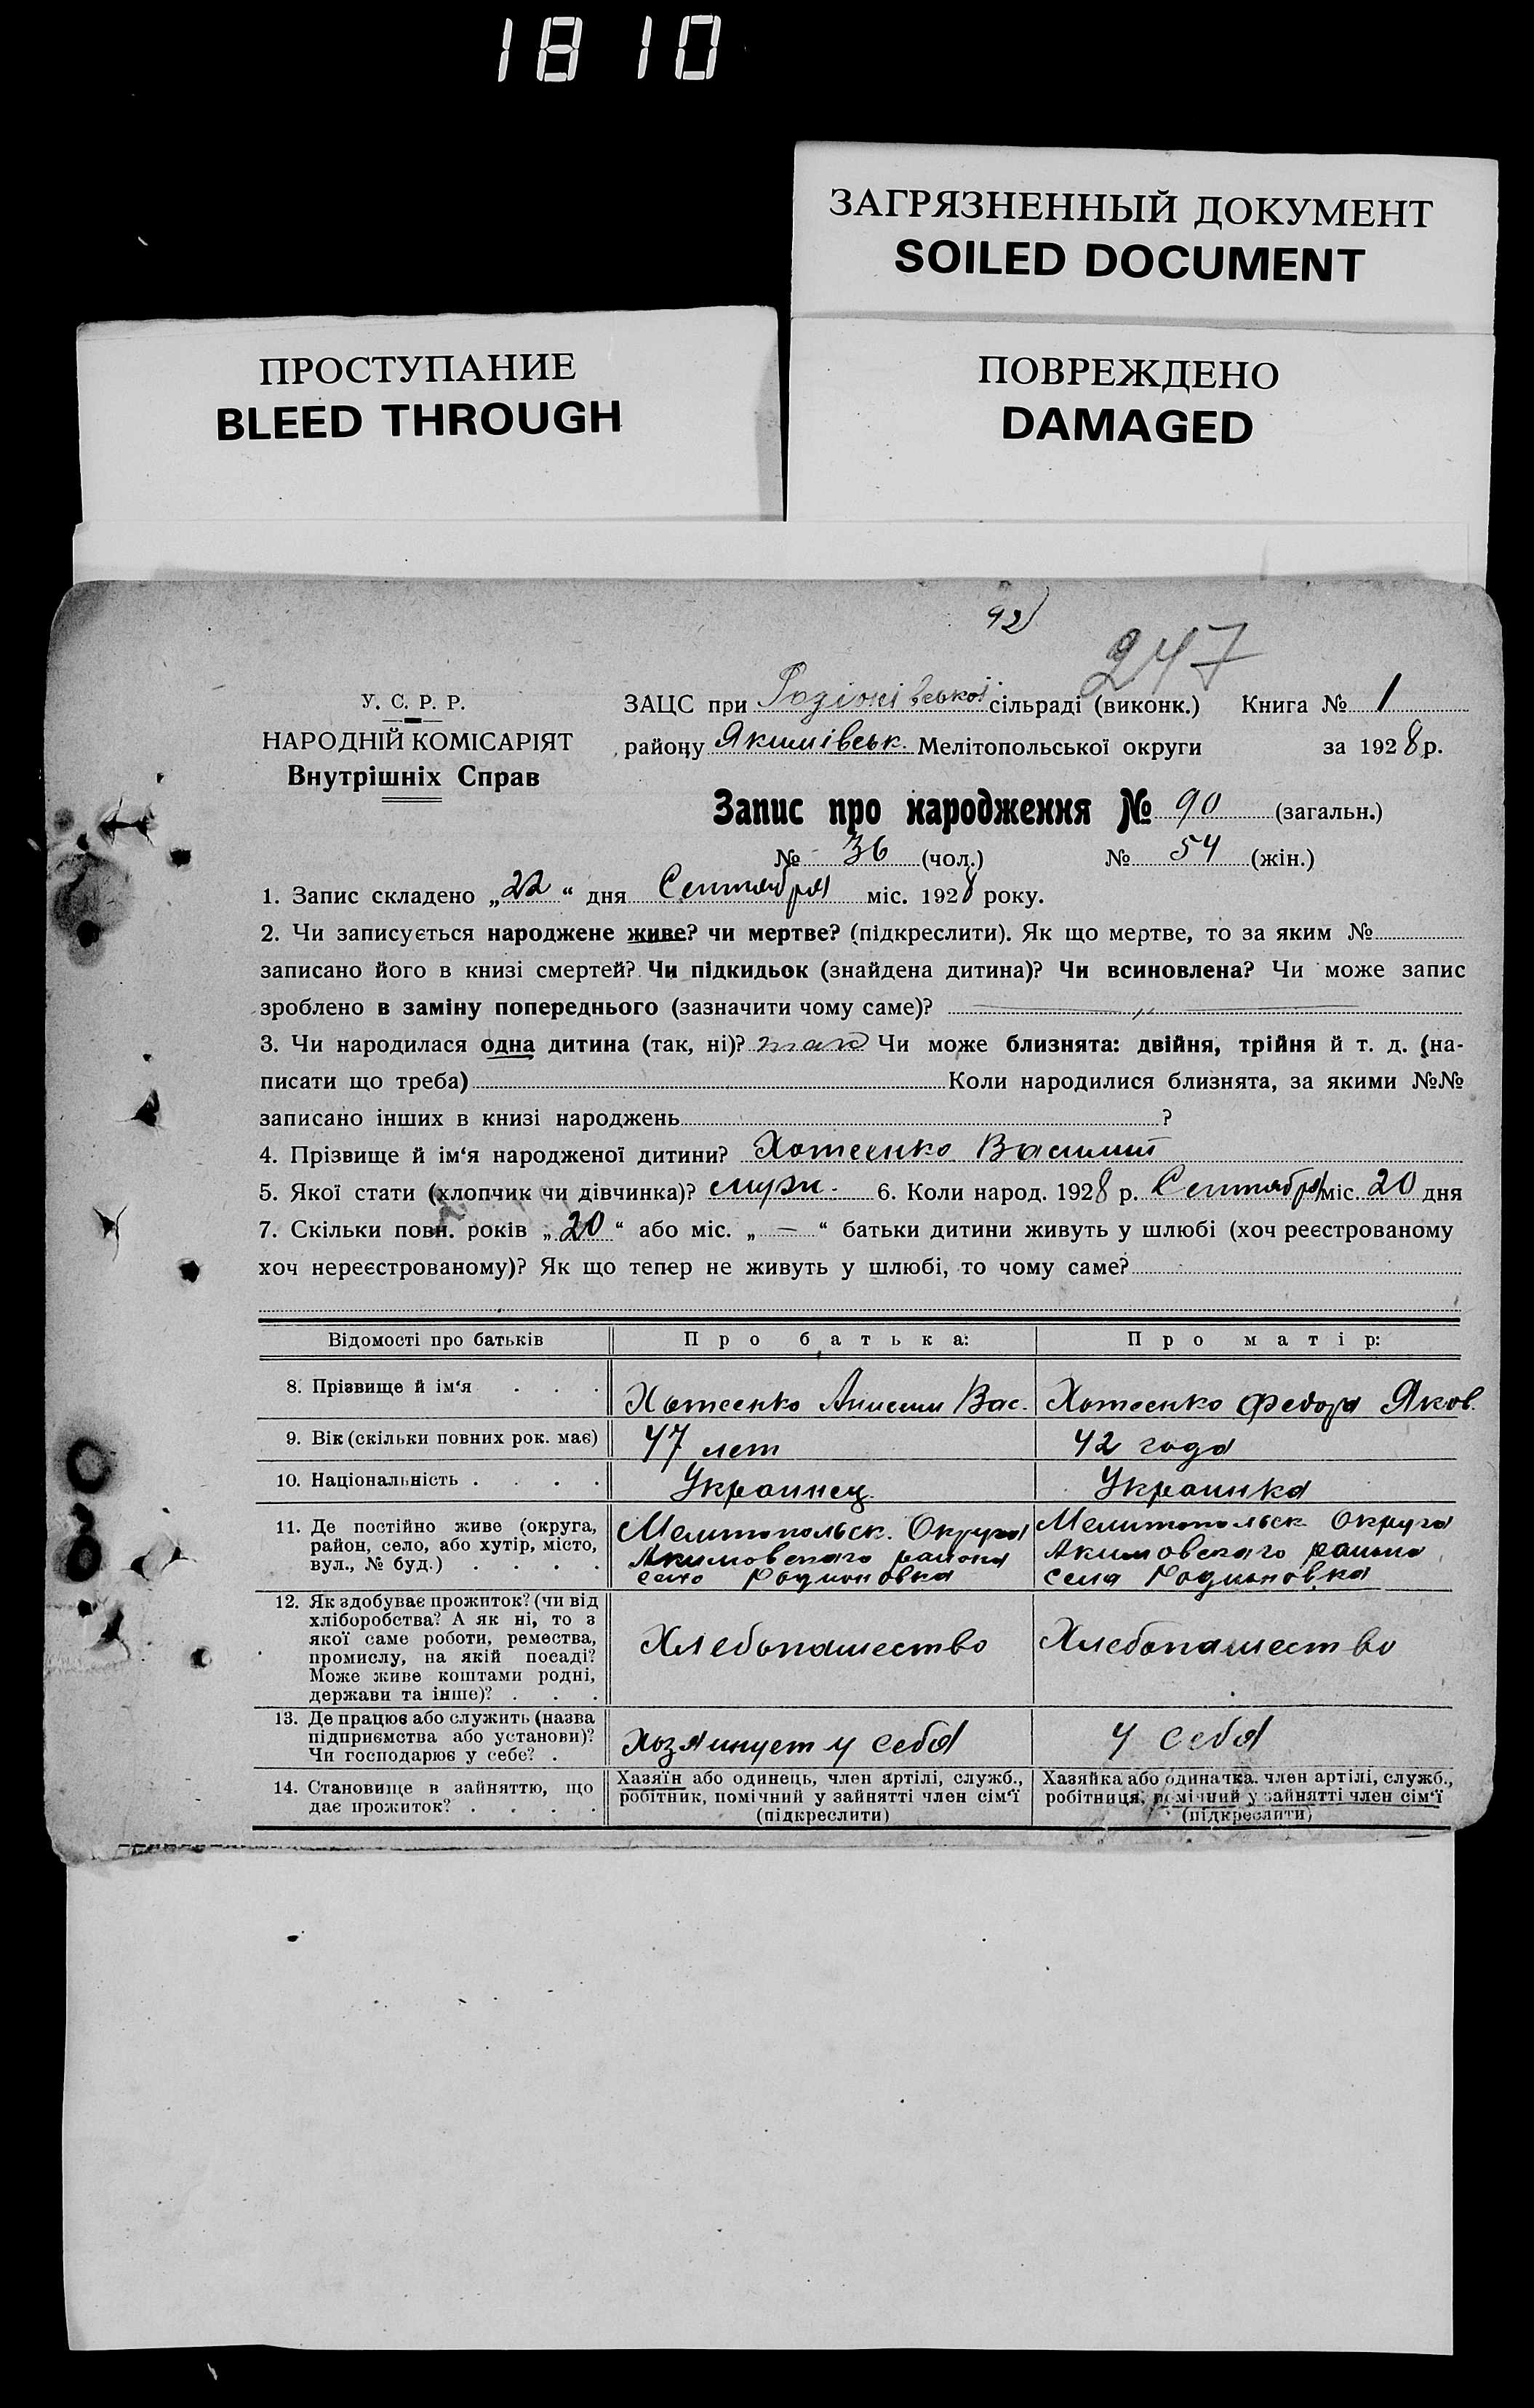 1810
ЗАГРЯЗНЕННЫЙ ДОКУМЕНТ
SOILED DOCUMENT
ПРОСТУПАНИЕ
BLEED THROUGH
ПОВРЕЖДЕНО
DAMAGED
92
247
У. С. Р. Р.
НАРОДНІЙ КОМІСАРІЯТ
Внутрішніх Справ
ЗАЦС при Родіонівської сільраді (виконк.) Книга № 1
району Якимівськ. Мелітопольської округи за 1928 р.
Запис про народження № 90 (загальн.)
№ 36 (чол.) № 54 (жін.)
1. Запис складено „22“ дня Сентября міс. 1928 року.
2. Чи записується народжене живе? чи мертве? (підкреслити). Як що мертве, то за яким №
записано його в книзі смертей? Чи підкидьок (знайдена дитина)? Чи всиновлена? Чи може запис
зроблено в заміну попереднього (зазначити чому саме)? — „ —
3. Чи народилася одна дитина (так, ні)? так Чи може близнята: двійня, трійня й т. д. (на-
писати що треба) Коли народилися близнята, за якими №№
записано інших в книзі народжень ?
4. Прізвище й ім‘я народженої дитини? Хотеенко Василий
5. Якої стати (хлопчик чи дівчинка)? мужч. 6. Коли народ. 1928 р. Сентября міс. 20 дня
7. Скільки повн. років „20“ або міс. „—“ батьки дитини живуть у шлюбі (хоч реєстрованому
хоч нереєстрованому)? Як що тепер не живуть у шлюбі, то чому саме?
Відомості про батьків Про батька: Про матір:
8. Прізвище й ім‘я . . . Хотеенко Анисим Вас. Хотеенко Федора Яков.
9. Вік (скільки повних рок. має) 47 лет 42 года
10. Національність . . . . Украинец Украинка
11. Де постійно живе (округа,
район, село, або хутір, місто,
вул., № буд.) . . . .
Мелитопольск. Округа
Акимовского района
село Родионовка
Мелитопольск. Округа
Акимовского района
села Родионовка
12. Як здобуває прожиток? (чи від
хліборобства? А як ні, то з
якої саме роботи, ремества,
промислу, на якій посаді?
Може живе коштами родні,
держави та інше)? . . .
Хлебопашество
Хлебопашество
13. Де працює або служить (назва
підприємства або установи)?
Чи господарює у себе? .
Хозяинует у себя
у себя
14. Становище в зайняттю, що
дає прожиток? . . . .
Хазяїн або одинець, член артілі, служб.,
робітник, помічний у зайнятті член сім‘ї
(підкреслити)
Хазяйка або одиначка. член артілі, служб.,
робітниця, помічний у зайнятті член сім‘ї
(підкреслити)